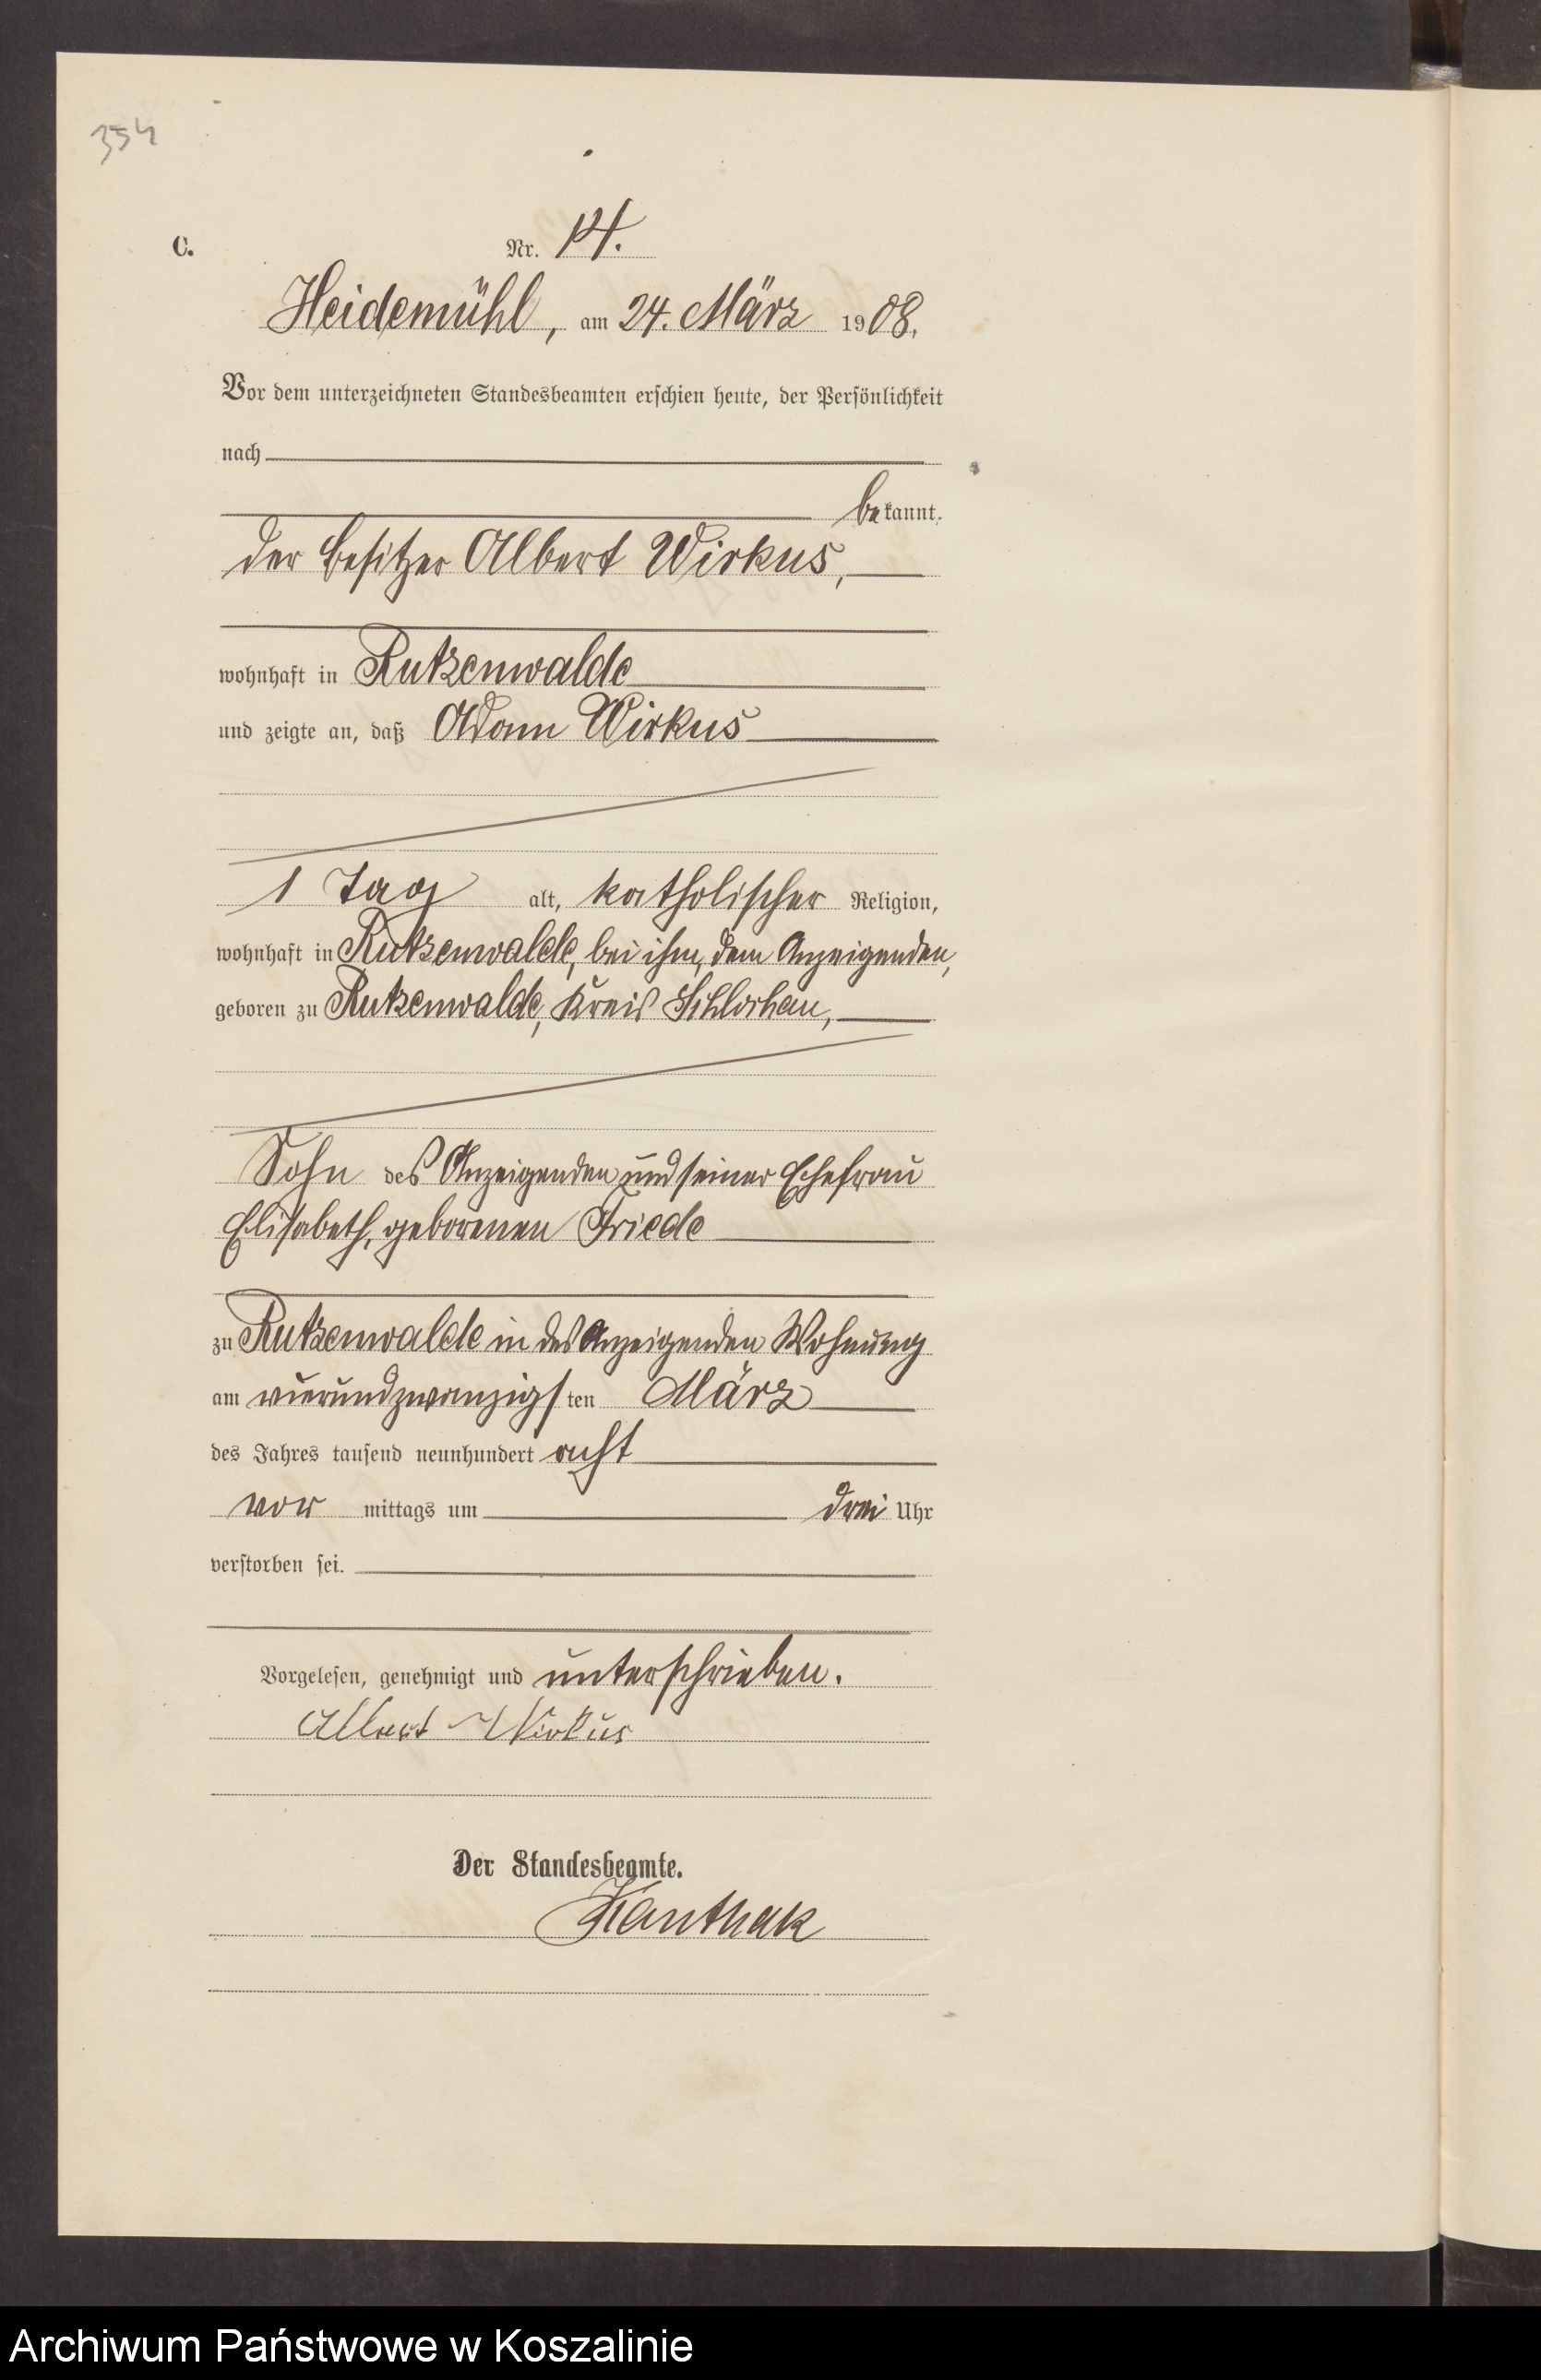 354
C.
Nr. 14.
Heidemühl, am 24. März 1908.
Vor dem unterzeichneten Standesbeamten erschien heute, der Persönlichkeit
nach
bekannt,
der Besitzer Albert Wirkus,
wohnhaft in Rutzenwalde
und zeigte an, daß Adam Wirkus
1 Tag alt, katholischer Religion,
wohnhaft in Rutzenwalde, bei ihm, dem Anzeigenden,
geboren zu Rutzenwalde, Kreis Schlochau,
Sohn des Anzeigenden und seiner Ehefrau
Elisabeth, geborenen Friede
zu Rutzenwalde in des Anzeigenden Wohnung
am vierundzwanzigsten März
des Jahres tausend neunhundert acht
vor mittags um drei Uhr
verstorben sei.
Vorgelesen, genehmigt und unterschrieben.
Albert Wirkus
Der Standesbeamte.
Kanthak
Archiwum Państwowe w Koszalinie